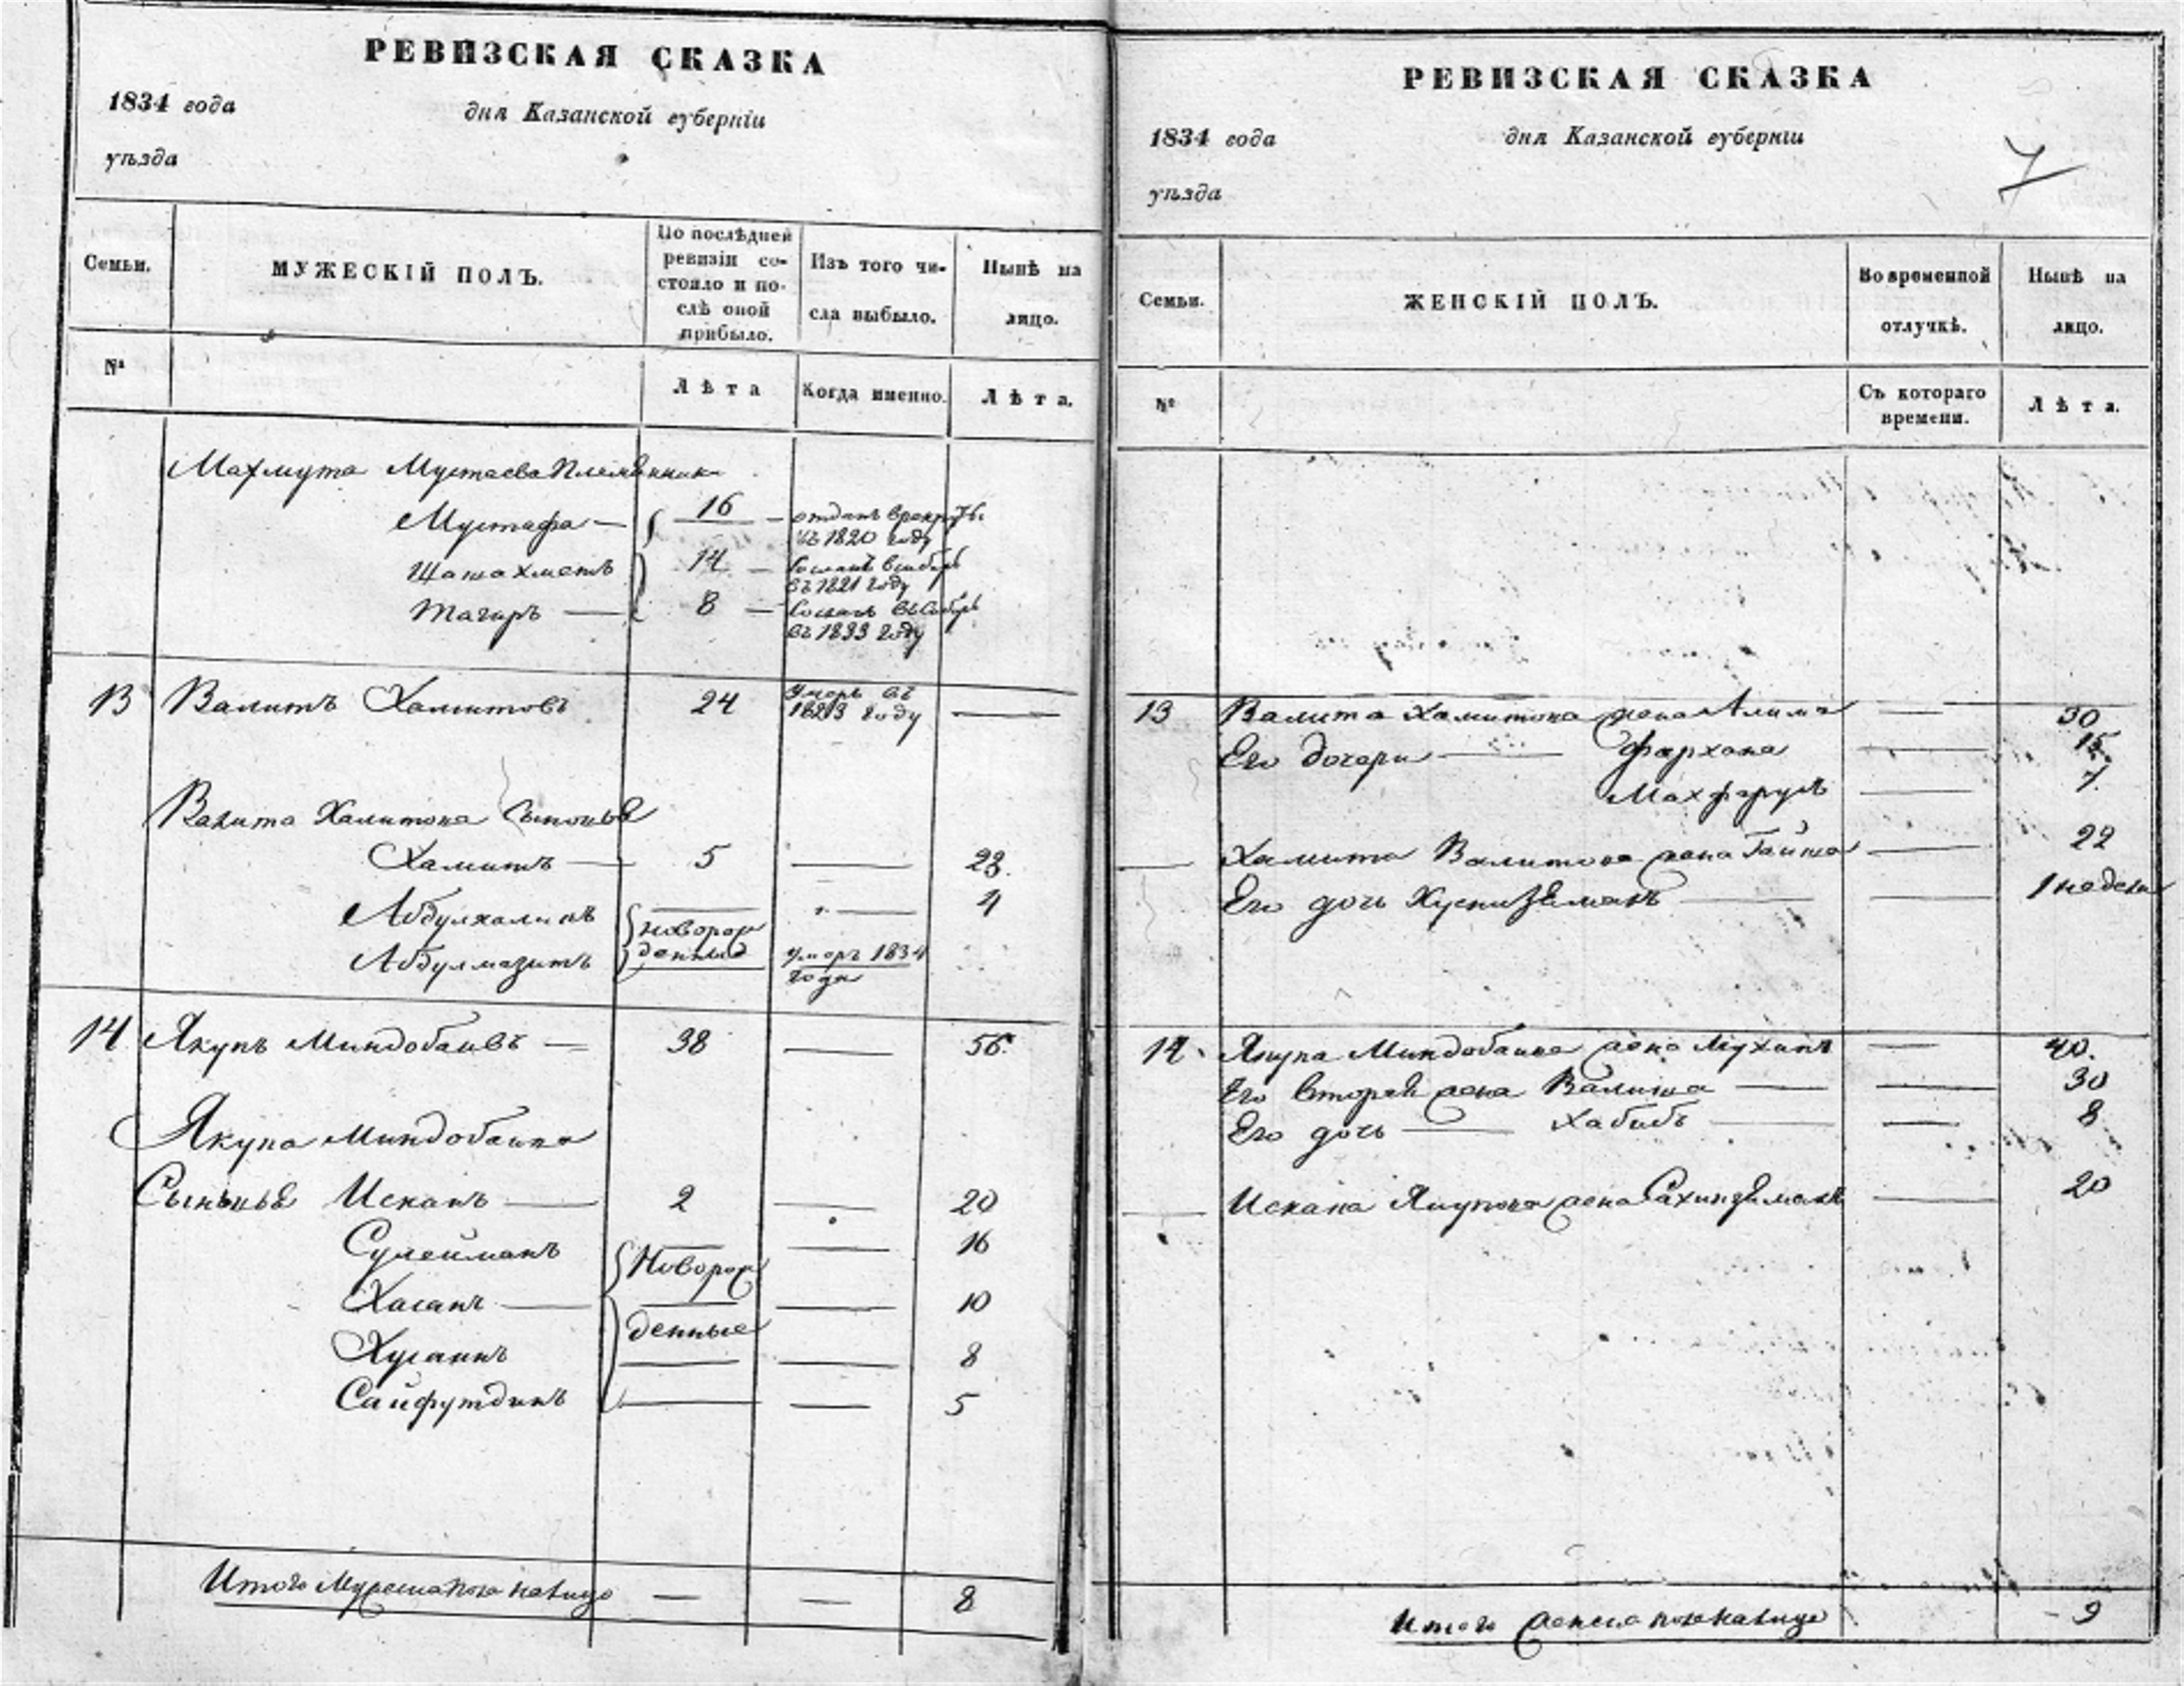 РЕВИЗСКАЯ СКАЗКА
1834 года дня Казанской губернiи
уѣзда
Семьи.
МУЖЕСКIЙ ПОЛЪ.
По послѣдней ревизiи со-
стояло и по-
слѣ оной
прибыло.
Изъ того чи-
сла выбыло.
Нынѣ на
лицо.
№
Лѣта
Когда именно.
Лѣта.
Махмута Мустаева Племянник
Мустафа — 16 — отданъ в рекруты
въ 1820 году
Шаиахметъ 14 — Сосланъ в сибирь
въ 1821 году
Тагиръ — 8 — Сосланъ въ Сибирь
въ 1833 году
13 Валитъ Хамитовъ 24 Умеръ въ
1823 году —
Валита Хамитова Сыновья
Хамитъ — 5 — 23.
Абдулхалилъ — 4
новорож
денныя
Абдулмазитъ умеръ 1834
года
14 Якупъ Миндобаевъ — 38 — 56.
Якупа Миндобаева
Сыновья Исканъ — 2 — 20
Сулейманъ — 16
Новорож
Хасанъ — 10
денные
Хусаинъ — 8
Сайфутдинъ — 5
Итого Мужеска пола налицо — — 8
РЕВИЗСКАЯ СКАЗКА
1834 года дня Казанской губернiи
7
уѣзда
Семьи.
ЖЕНСКIЙ ПОЛЪ.
Во временной
отлучкѣ.
Нынѣ на
лицо.
№
Съ котораго
времени.
Лѣта.
13 Валита Хамитова жена Алима — 30
Его дочери — Фархана — 15.
Махфрузъ — 7.
Хамита Валитова жена Гайша — 22
Его дочь Хусниземанъ — 1 недели
14. Якупа Миндобаева жена Мухипъ — 40.
Его вторая жена Валиша — 30
Его дочь — Хабибъ — 8
Искана Якупова жена Сахипземанъ — 20
Итого женска пола налицо - 9